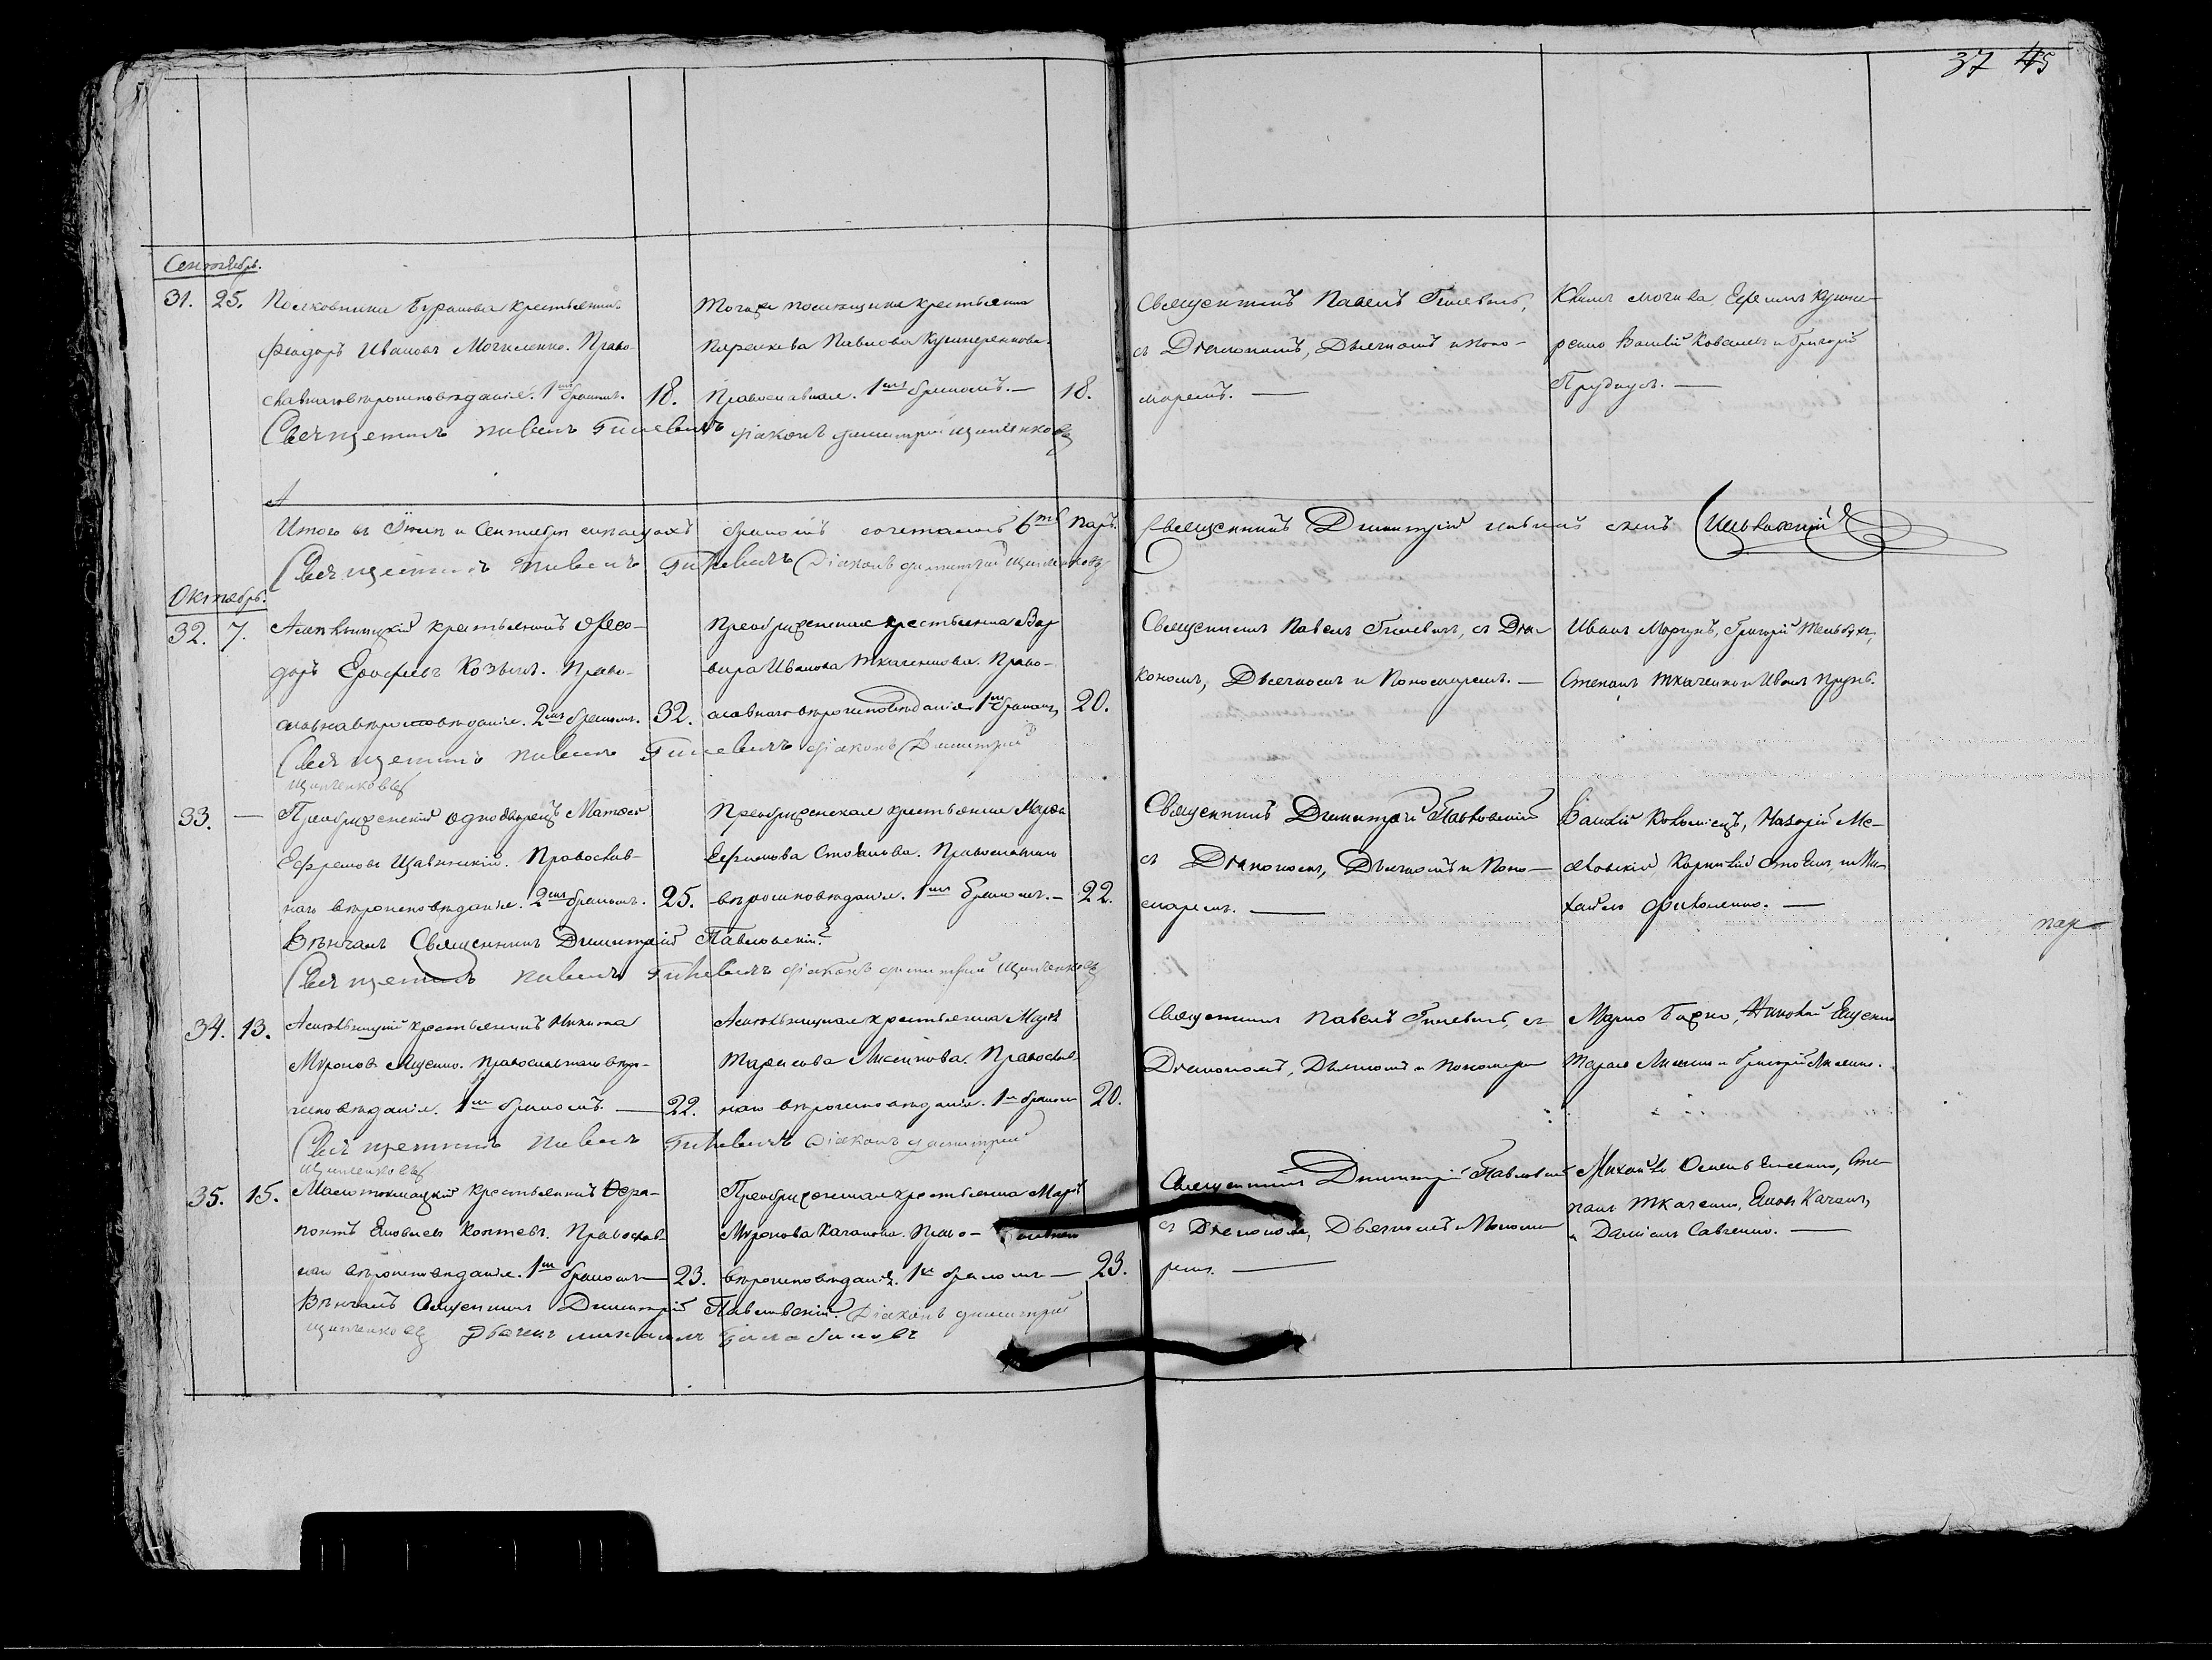 37 45
Сентябрь.
31. 25. Полковника Буракова крестьянинъ
Ѳеодоръ Ивановъ Могиленко. Право-
славнаго вѣроисповѣданія. 1мъ бракомъ. 18.
Тогоже помещика крестьянка
Параскева Павлова Кушнеренкова.
Православная. 1мъ бракомъ. — 18.
Священникъ Павелъ Гилевичъ,
съ Діакономъ, Дьячкомъ и Поно-
маремъ. —
Могила, Ефимъ Кушне-
ренко Василій Ковалевъ и Григорій
Прудкусъ. —
Священникъ Павелъ Гилевичъ Діаконъ Димитрій
Итого въ и Сентябрѣ мѣсяцахъ бракомъ сочетанось 6ть Паръ.
Священникъ Димитрій
Священникъ Павелъ Гилевичъ Діаконъ Димитрій
Октябрь.
32. 7. крестьянинъ Ѳео-
доръ Ерофѣевъ Козыкъ. Право-
славна вѣроисповѣданія. 2мъ бракомъ. 32.
Преображенская крестьянка Вар
вара Иванова Ткаченкова. Право-
славнаго вѣроисповѣданія 1мъ бракомъ, 20.
Священникъ Павелъ Гилевичъ, съ Діа
кономъ, Дьячкомъ и Пономаремъ. —
Иванъ Моргунъ, Григорій
Степанъ Ткаченко и Иванъ
Священникъ Павелъ Гилевичъ Діаконъ Димитрій
33. — Преображенскій однодворецъ Матвей
Ефремовъ Щавинскій. Православ-
наго вѣроисповѣданія. 2мъ бракомъ. 25.
Преображенская крестьянка Марѳа
Ефимова Стоялова. Православнаго
вѣроисповѣданія. 1мъ бракомъ. — 22.
Священникъ Димитрій Павловскій
съ Діакономъ, Дьячкомъ и Поно-
маремъ. —
Василій Коломіецъ, Назарій Ме-
Корнилій и Ми-
хайло Филоненко. —
Вѣнчалъ Священникъ Димитрій Павловскій.
Священникъ Павелъ Гилевичъ Діаконъ Димитрій
пар
34. 13. крестьянинъ Никита
Мироновъ Яценко. Православнаго вѣро-
исповѣданія. 1мъ бракомъ. — 22.
крестьянка
Тарасова Лисенкова. Православ-
наго вѣроисповѣданія. 1мъ бракомъ 20.
Священникъ Павелъ Гилевичъ, съ
Діакономъ, Дьячкомъ и Пономаре
Марко Николай Яценко
Тарасъ Лисенко и Григорій Лисенко.
Священникъ Павелъ Гилевичъ Діаконъ Димитрій
35. 15. Малотокмацкій крестьянинъ Ѳера-
понтъ Яковлевъ Коптевъ. Православ-
наго вѣроисповѣданія. 1мъ бракомъ — 23.
Преображенская крестьянка
Миронова Качанова. Право-
вѣроисповѣданія. 1мъ бракомъ — 23.
Священникъ Димитрій Павловскій
съ Діакономъ, Дьячкомъ и Понома
ремъ. —
Михайло Сте-
панъ Ткаченко, Яковъ Качанъ,
и Даніилъ Савченко. —
Вѣнчалъ Священникъ Димитрій Павловскій. Діаконъ Димитрій
Дьячекъ Михаилъ Балабановъ